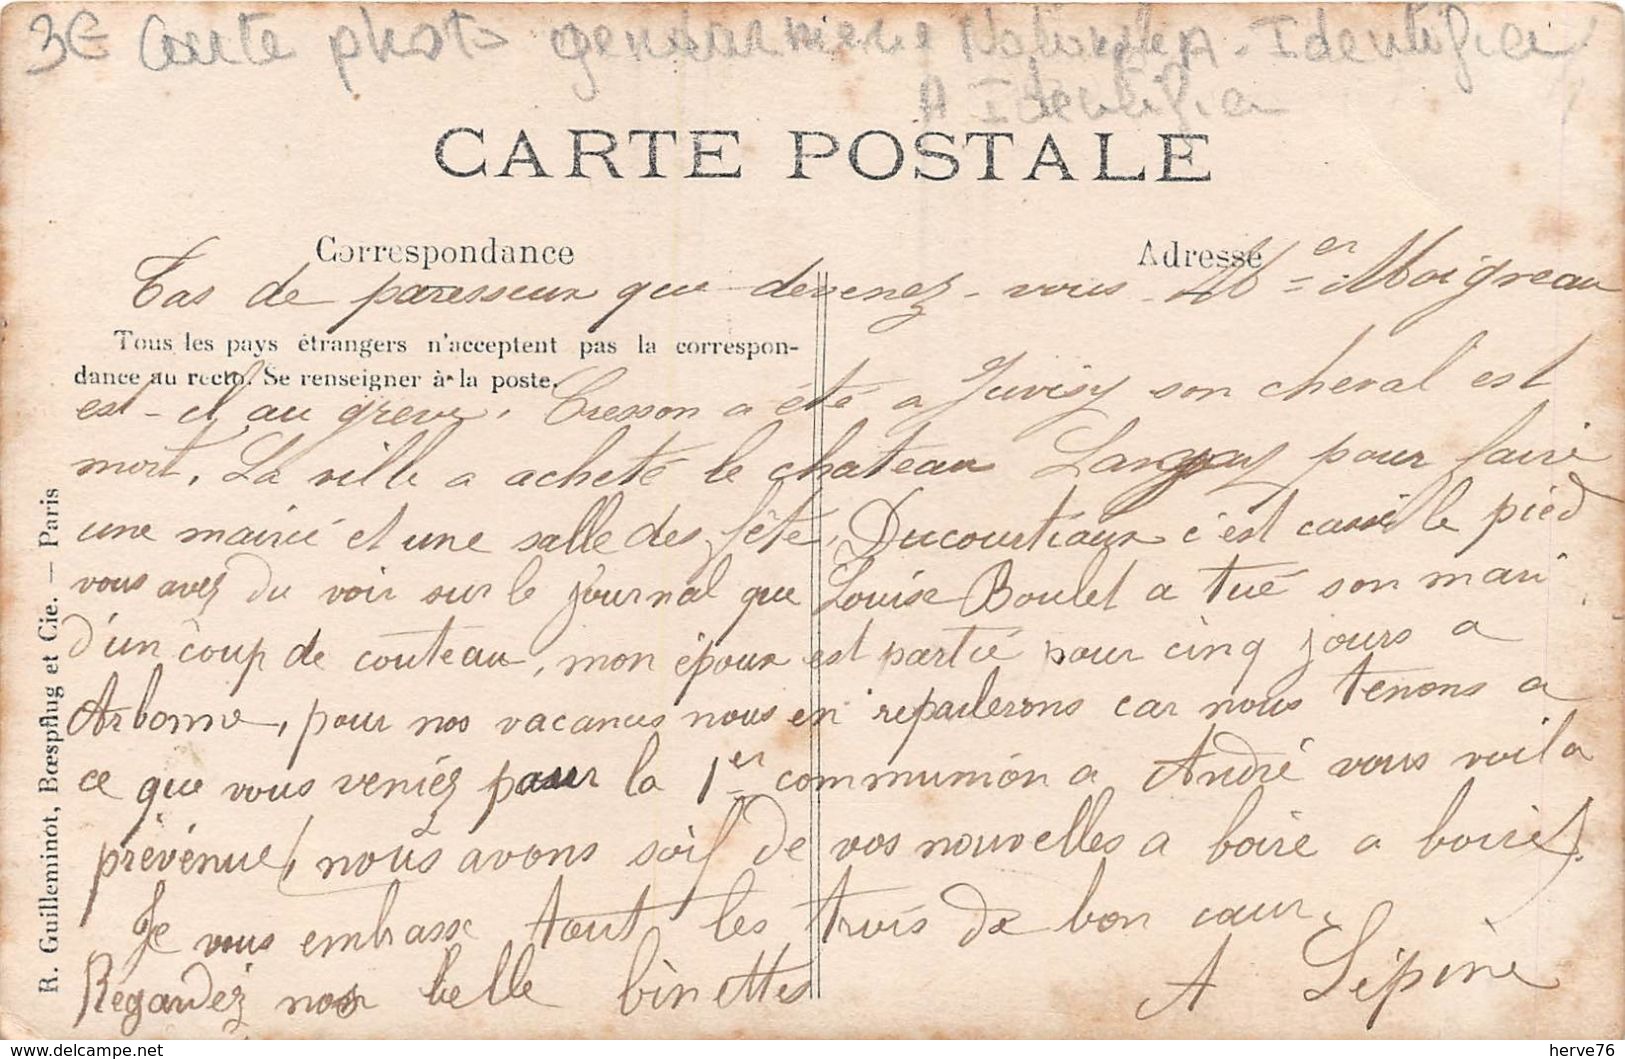 3€ Carte photo gendarmerie Nationale A - Identifier
A Identifier
CARTE POSTALE
Correspondance
Adresse
Tas de paresseux que devenez-vous Mer Moigneau
Tous les pays étrangers n'acceptent pas la correspon-
dance au recto. Se renseigner à la poste.
est-il au greve. Cresson a été a Juvisy son cheval est
mort. La ville a acheté le chateau pour faire
une mairie et une salle des fête, Ducourtiaux c'est cassé le pied
vous avez du voir sur le journal que Louise Boulet a tué son mari
d'un coup de couteau, mon époux est partie pour cinq jours a
Arbonne, pour nos vacances nous en reparlerons car nous tenons a
ce que vous veniez pour la 1er communion a André vous voila
prévenue, nous avons soif de vos nouvelles a boire a boire).
Je vous embrasse tout les trois de bon cœur.
Regardez nos belle binettes
A Lépine
R. Guilleminot, Bœspflug et Cie. — Paris
herve76